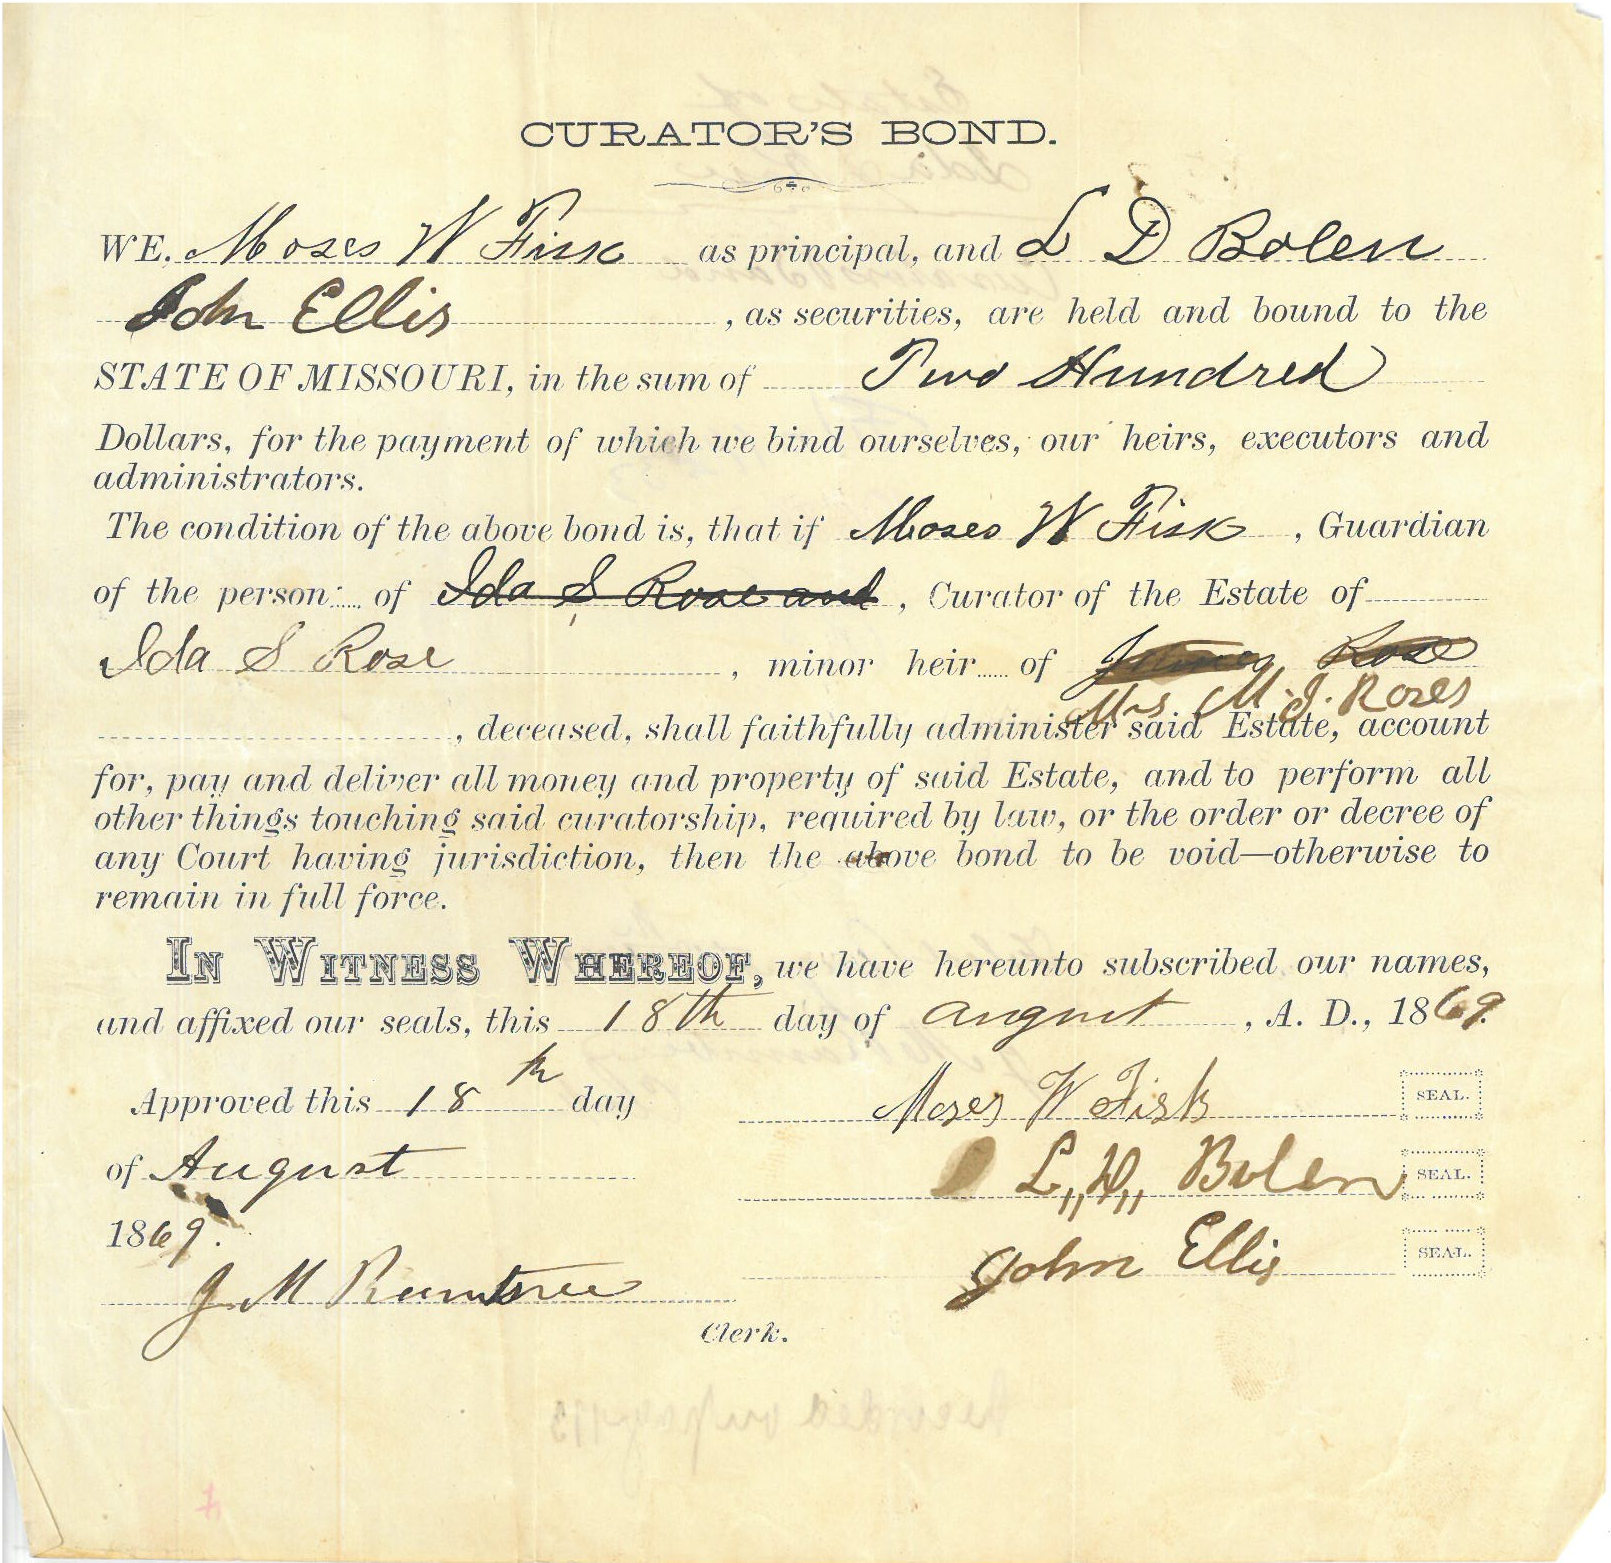 CURATOR'S BOND.
WE, Moses W Fisk as principal, and L D Bolen
John Ellis , as securities, are held and bound to the
STATE OF MISSOURI, in the sum of Two Hundred
Dollars, for the payment of which we bind ourselves, our heirs, executors and
administrators.
The condition of the above bond is, that if Moses W Fisk , Guardian
of the person of Ida S Rose and , Curator of the Estate of
Ida S Rose , minor heir of Rose
Mrs M. J. Roses
, deceased, shall faithfully administer said Estate, account
for, pay and deliver all money and property of said Estate, and to perform all
other things touching said curatorship, required by law, or the order or decree of
any Court having jurisdiction, then the above bond to be void—otherwise to
remain in full force.
IN WITNESS WHEREOF, we have hereunto subscribed our names,
and affixed our seals, this 18th day of august , A. D., 1869.
Approved this 18th day
Moses W Fisk SEAL.
of August
L,, D,, Bolen SEAL.
1869.
John Ellis SEAL.
J M Rumtree
Clerk.